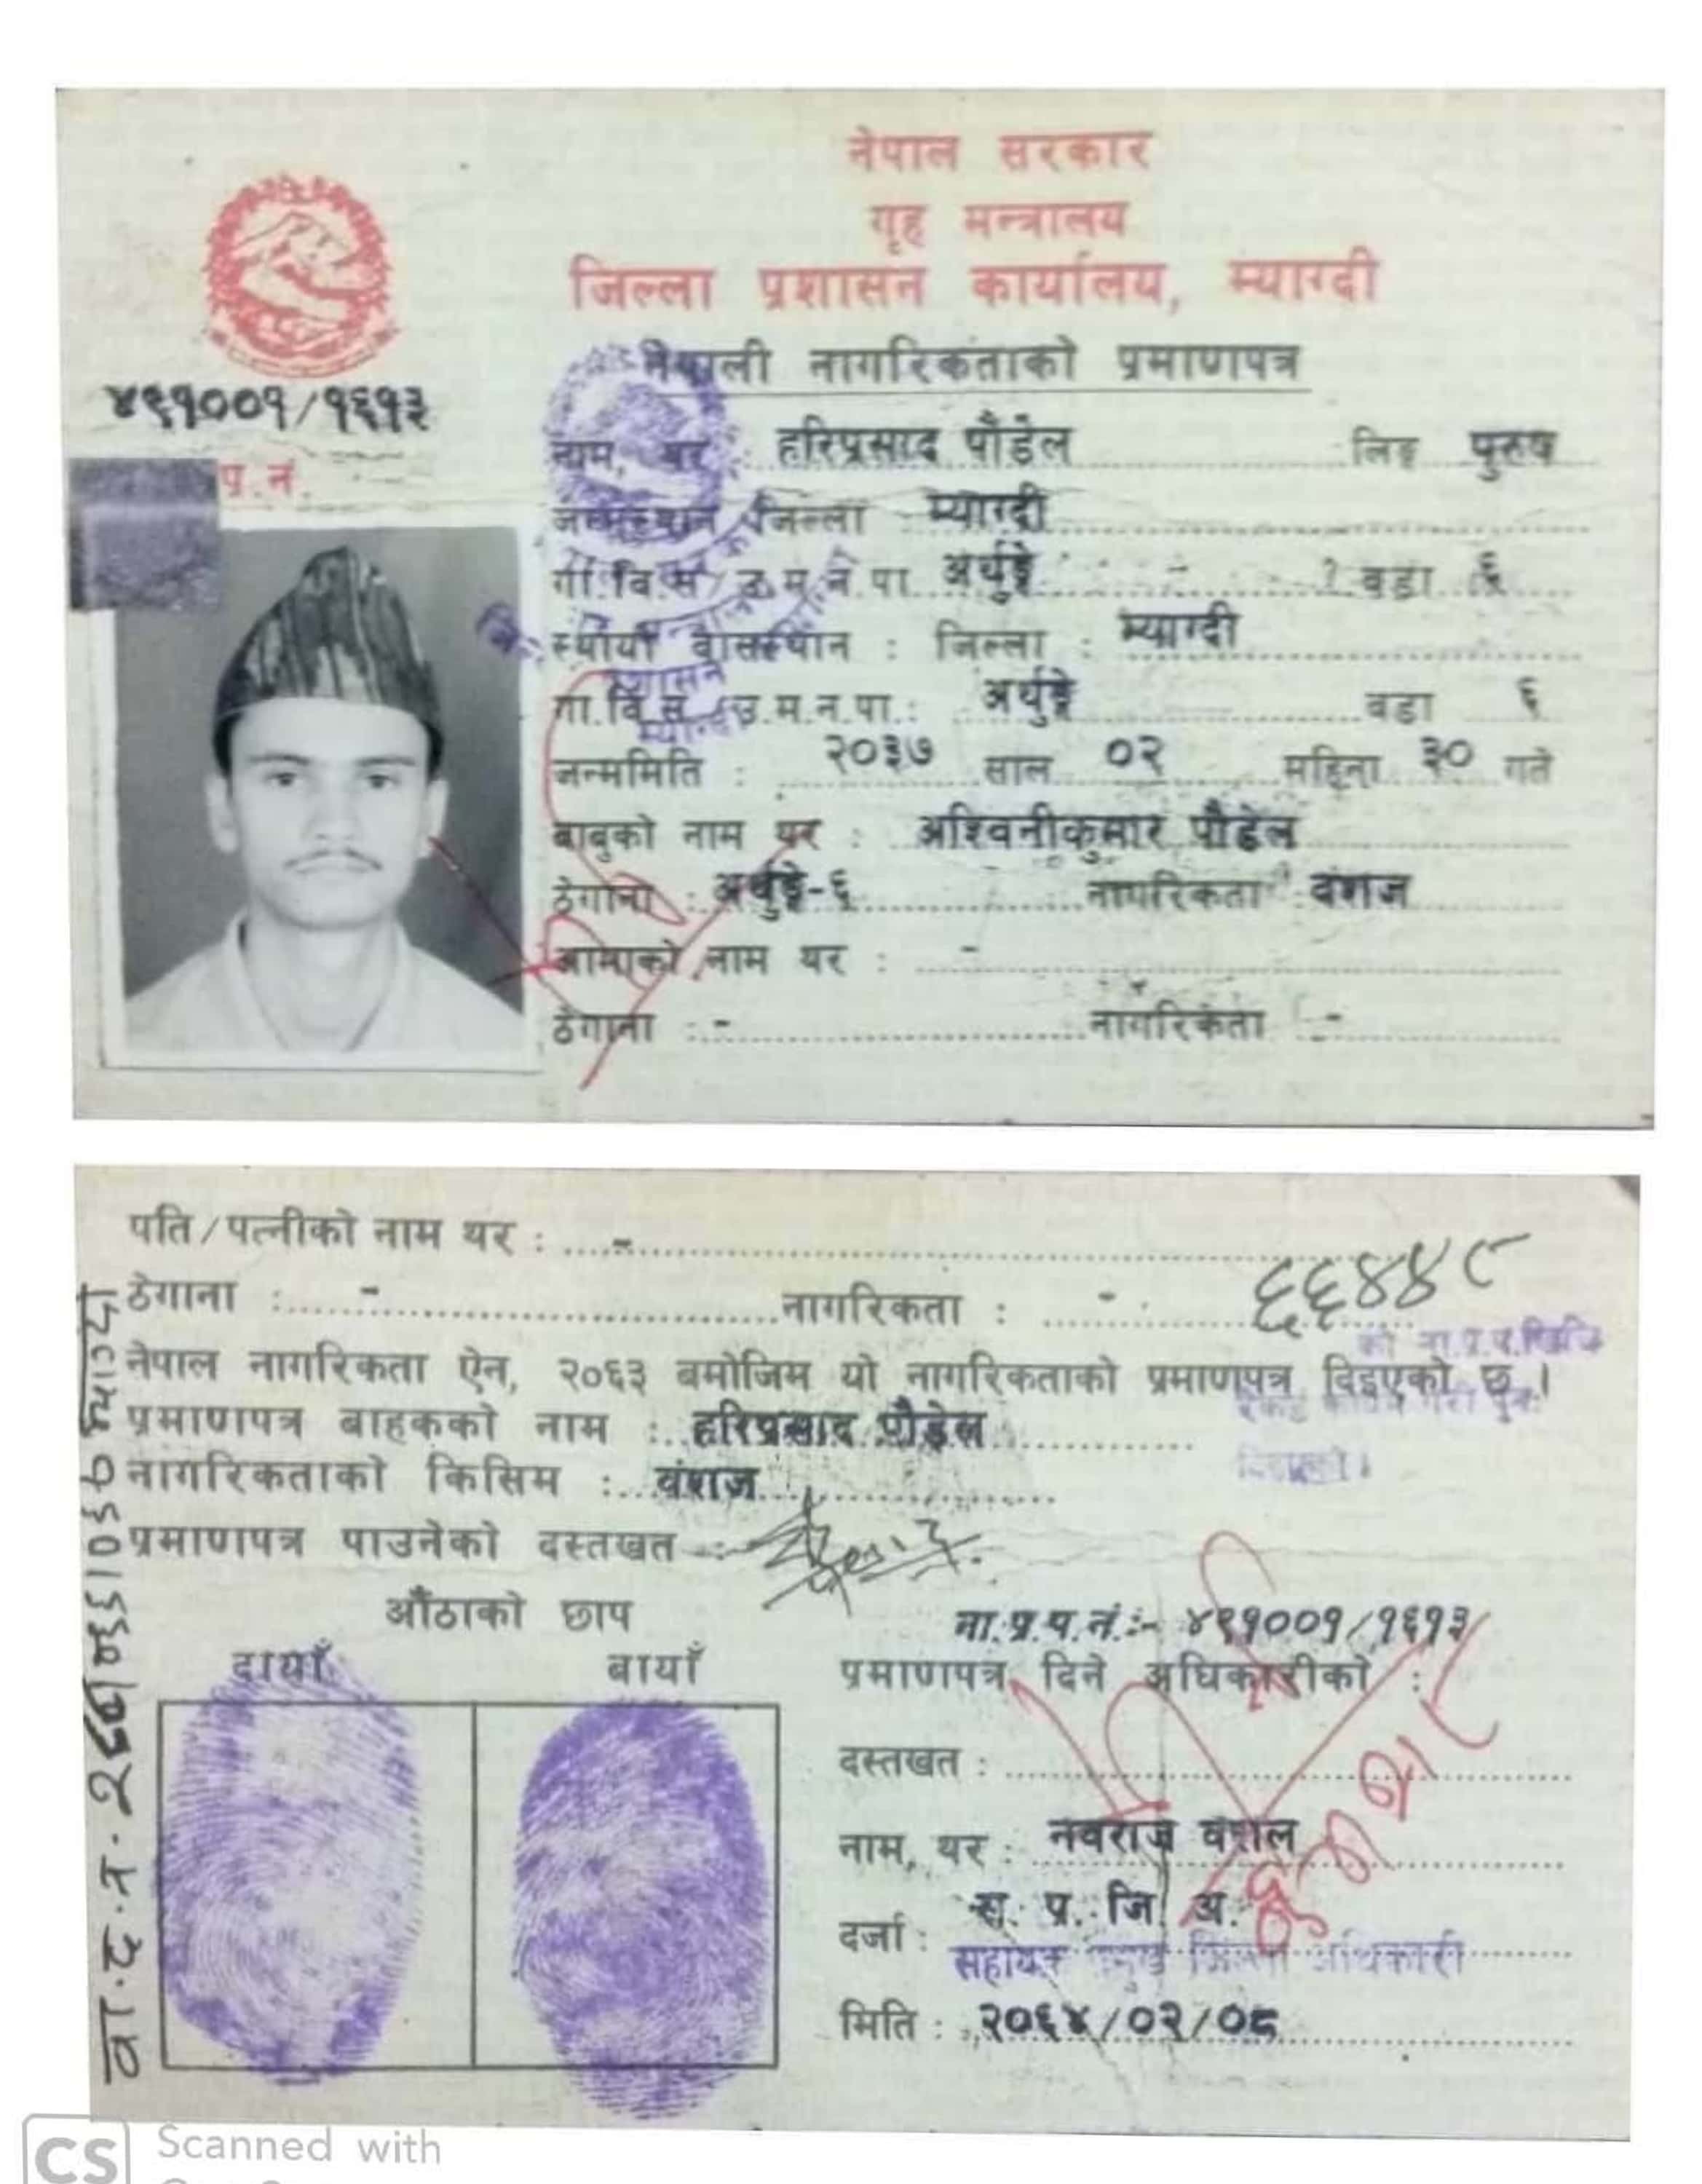 नेपाल सरकार
गृह मन्त्रालय
जिल्ला प्रशासन कार्यालय, म्याग्दी
नेपाली नागरिकताको प्रमाणपत्र
४९१००१/१६१३
प्र.नं.
नाम, थर : हरिप्रसाद पौडेल लिङ्ग पुरुष
जन्मस्थान जिल्ला म्याग्दी
गा.वि.स/उ.म.न.पा. अर्थुङ्गे वडा ६
स्थायी वासस्थान : जिल्ला : म्याग्दी
गा.वि.स./उ.म.न.पा.: अर्थुङ्गे वडा ६
जन्ममिति : २०३७ साल ०२ महिना ३० गते
बाबुको नाम थर : अश्विनीकुमार पौडेल
ठेगाना : अर्थुङ्गे-६ नागरिकता वंशज
आमाको नाम थर : -
ठेगाना : - नागरिकता : -
पति/पत्नीको नाम थर : -
ठेगाना : - नागरिकता : -
६६४४८
को ना.प्र.प.
नेपाल नागरिकता ऐन, २०६३ बमोजिम यो नागरिकताको प्रमाणपत्र दिइएको छ।
प्रमाणपत्र बाहकको नाम : हरिप्रसाद पौडेल
नागरिकताको किसिम : वंशज
प्रमाणपत्र पाउनेको दस्तखत :
औंठाको छाप
दायाँ बायाँ
ना.प्र.प.नं.:- ४९१००१/१६१३
प्रमाणपत्र दिने अधिकारीको :
दस्तखत :
नाम, थर : नवराज वंशल
दर्जा : स. प्र. जि. अ.
सहायक प्रमुख जिल्ला अधिकारी
मिति : २०६४/०२/०८
Scanned with
CS